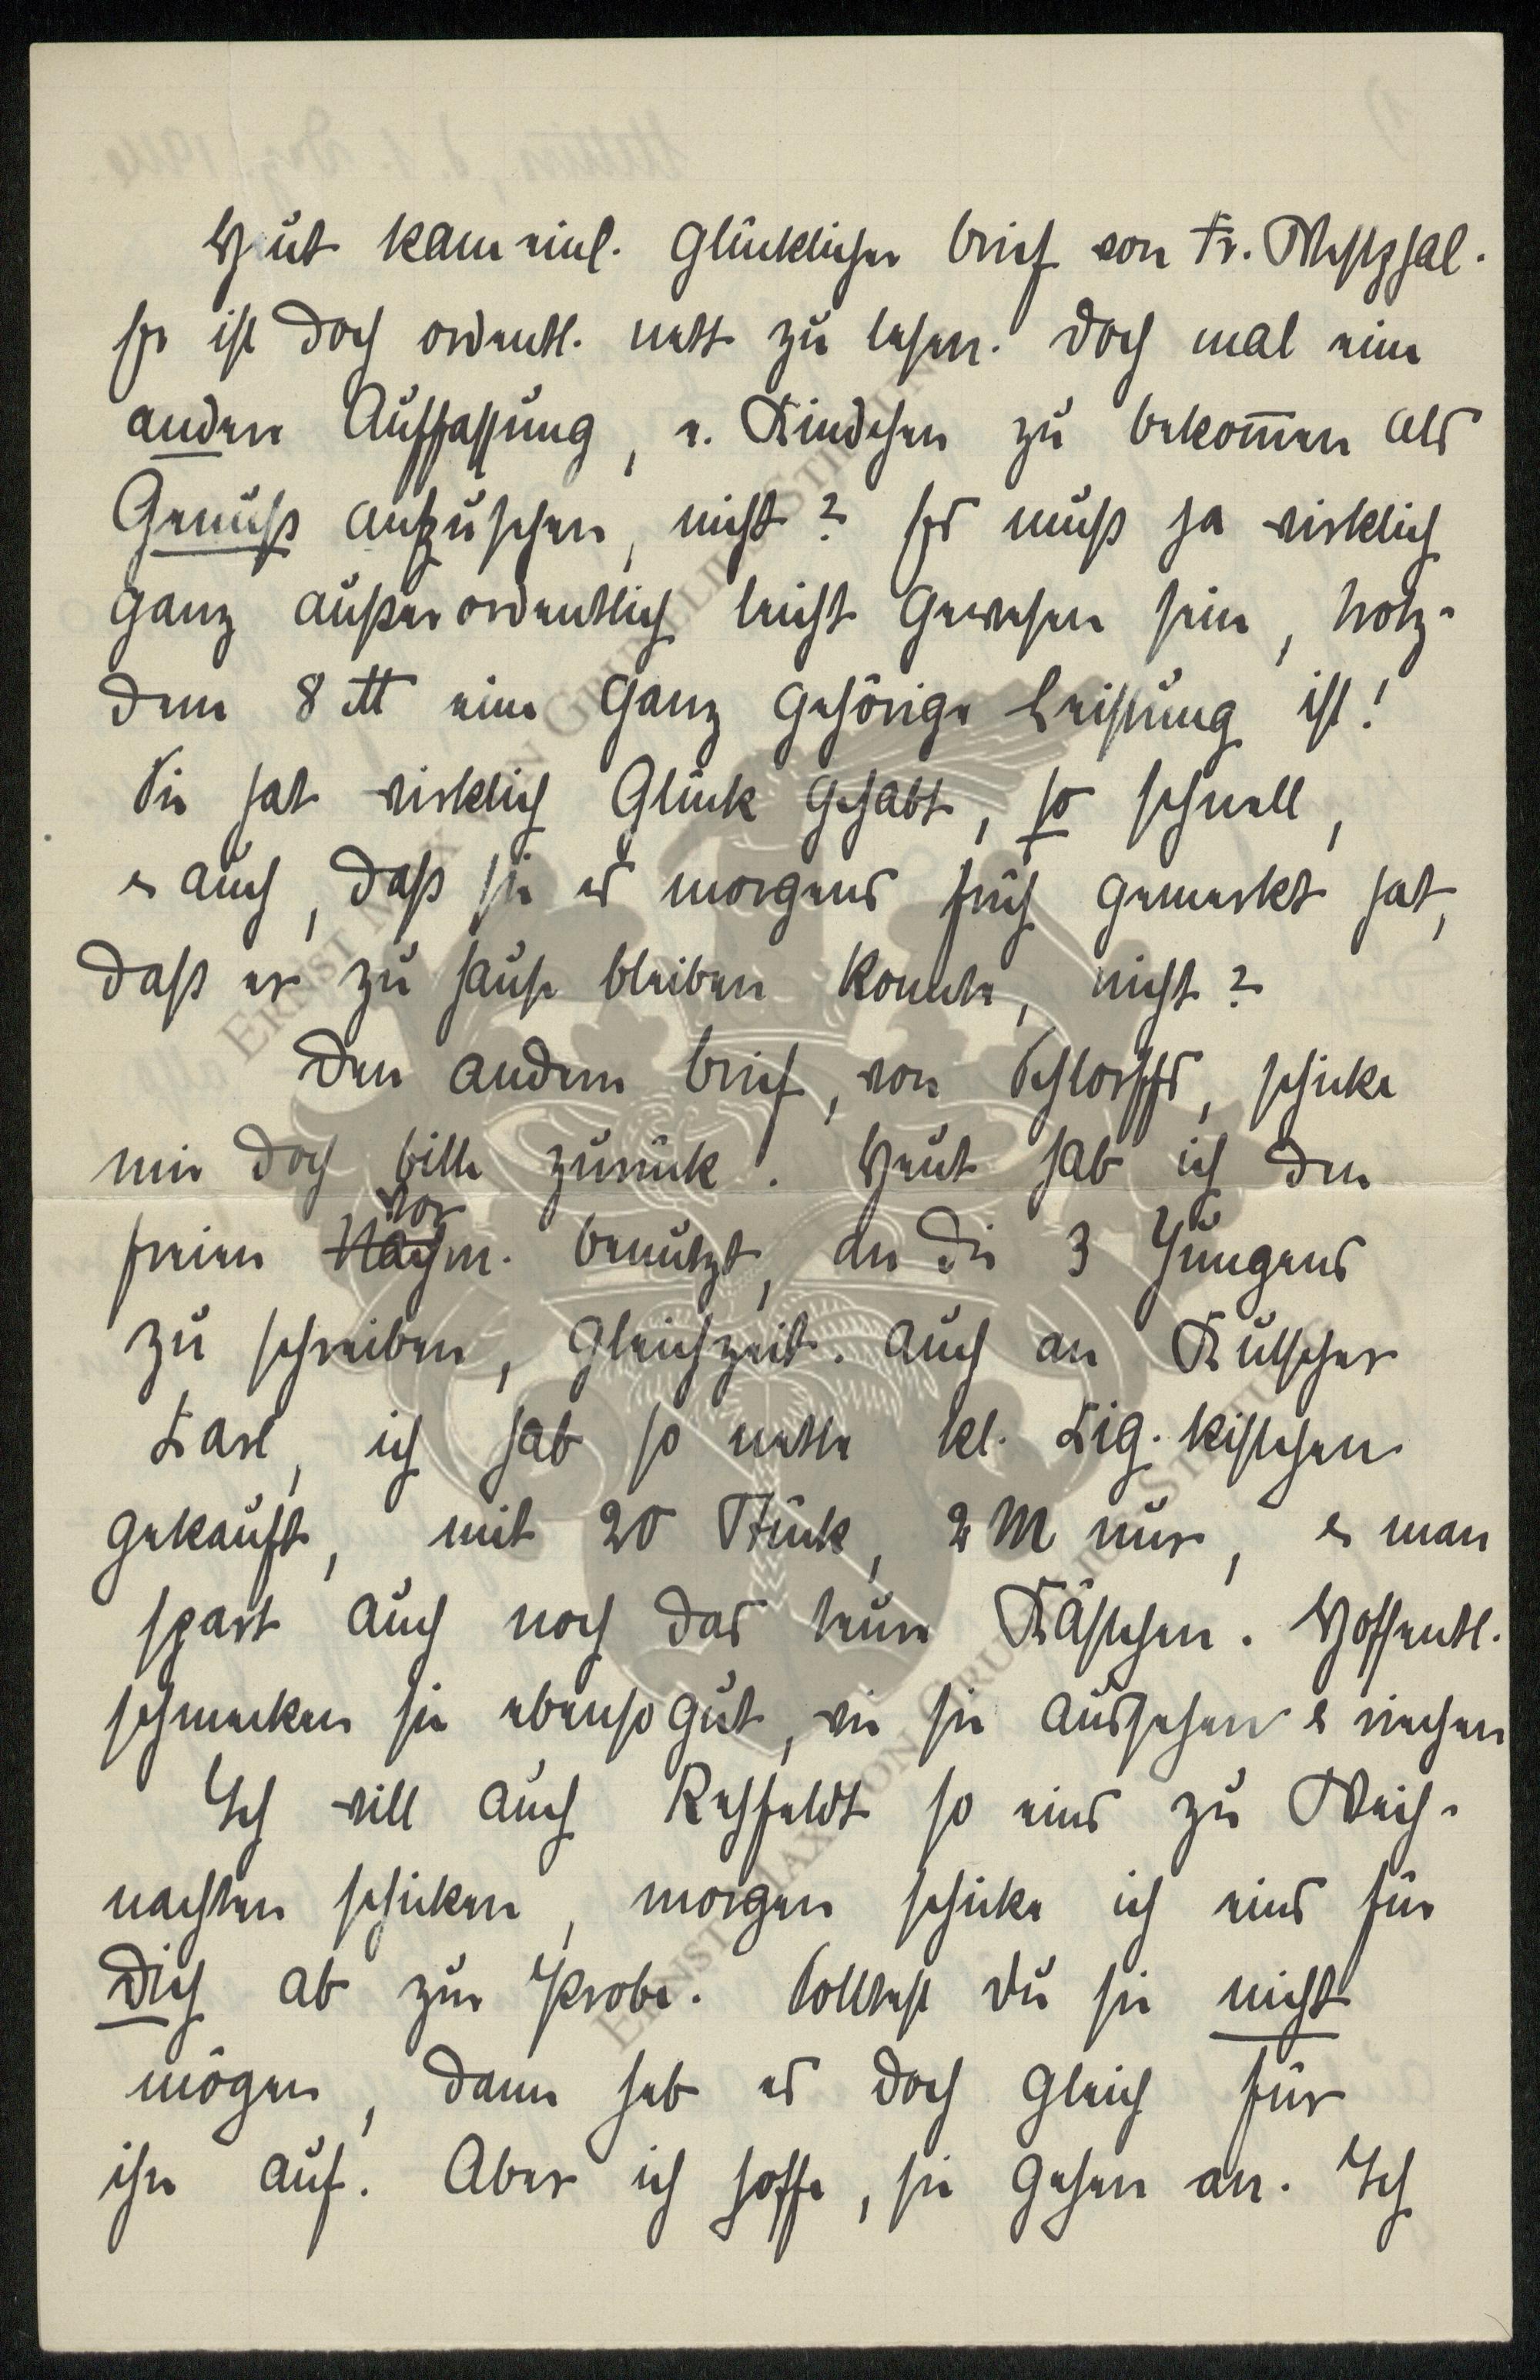 Heut kam einl. glücklicher Brief von Fr. Westphal.
Er ist doch ordentl. nett zu lesen. Doch mal eine
andere Auffassung, e. Kindchen zu bekommen als
Genuß anzusehen, nicht? Es muß ja wirklich
ganz außerordentlich leicht gewesen sein, trotz-
dem 8 ℔ eine ganz gehörige Leistung ist!
Sie hat wirklich Glück gehabt, so schnell,
& auch, daß sie es morgens früh gemerkt hat,
daß er zu Hause bleiben konnte, nicht?
Den andern Brief, von Schlorffs, schicke
mir doch bitte zurück. Heut hab ich den
freien Nachm. vor benutzt, an die 3 Jungens
zu schreiben, gleichzeit. auch an Kutscher
Karl, ich hab so nette kl. Zig. kistchen
gekauft, mit 20 Stück, 2 M nur, & man
spart auch noch das teure Kästchen. Hoffentl.
schmecken sie ebenso gut, wie sie aussehen & riechen
Ich will auch Rehfeldt so eins zu Weih-
nachten schicken, morgen schicke ich eins für
Dich ab zur Probe. Solltest Du sie nicht
mögen, dann heb es doch gleich für
ihn auf. Aber ich hoffe, sie gehen an. Ich
ERNST MAX VON GRUNELIUS-STIFTUNG
ERNST MAX VON GRUNELIUS-STIFTUNG